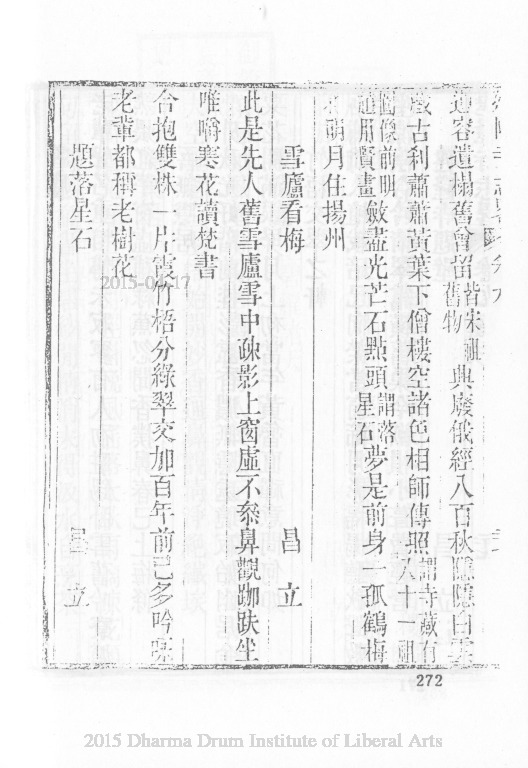 遺榻舊會留皆宋祖舊物興廢俄經八百秋隱隱白雲
古刹蕭蕭黃葉下僧樓空諸色相師傳照謂寺藏有八十一祖
圖像前明丁用賢畫斂盡光芒石點頭謂落星石夢是前身一孤鶴梅
萌月住揚州
雪廬看梅 昌立
此是先人舊雪廬雪中疎影上窗虛不參鼻觀跏趺坐
唯嚼寒花讀梵書
合抱雙株一片霞竹梧分綠翠交加百年前已多吟詠
老輩都稱老樹花
題落星石 昌立
272
2015-04-17
2015 Dharma Drum Institute of Liberal Arts